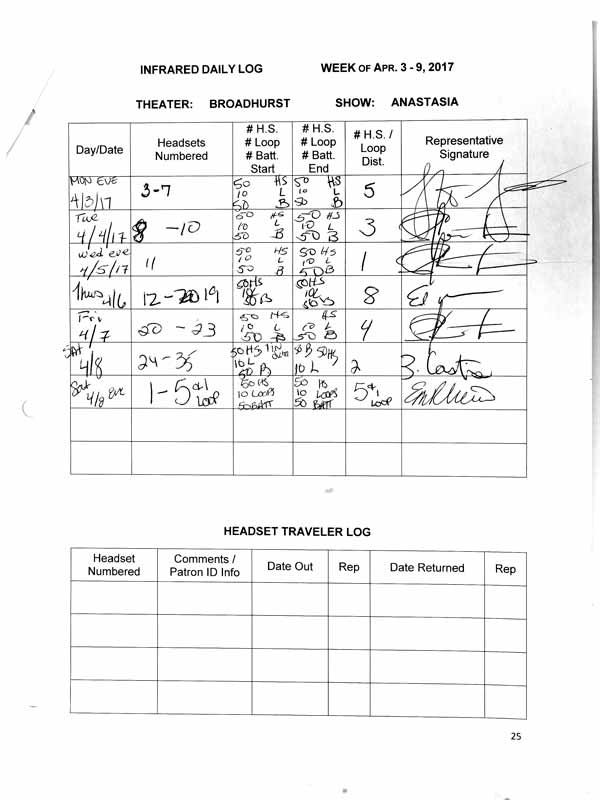 INFRARED DAILY LOG WEEK OF APR. 3 - 9, 2017
THEATER: BROADHURST SHOW: ANASTASIA
Day/Date Headsets Numbered # H.S. # Loop # Batt. Start # H.S. # Loop # Batt. End # H.S. / Loop Dist. Representative Signature
MON EVE 4/3/17 3-7 50 HS 10 L 50 B 50 HS 10 L 50 B 5
Tue 4/4/17 8 -10 50 HS 10 L 50 B 50 HS 10 L 50 B 3
Wed eve 4/5/17 11 50 HS 10 L 50 B 50 HS 10 L 50 B 1
Thus 4/6 12 - 19 50HS 10L 50B 50HS 10L 50B 8
Fri 4/7 20 - 23 50 HS 10 L 50 B HS 10 L 50 B 4
Sat 4/8 24 - 35 50 HS 10 L 50 B 50HS 10 L 2 Z. Castro
Sat 4/8 eve 1-5 &1 LOOP 50 HS 10 LOOPS 50 BATT 50 10 LOOPS 50 BATT 5 &1 LOOP
HEADSET TRAVELER LOG
Headset Numbered Comments / Patron ID Info Date Out Rep Date Returned Rep
25